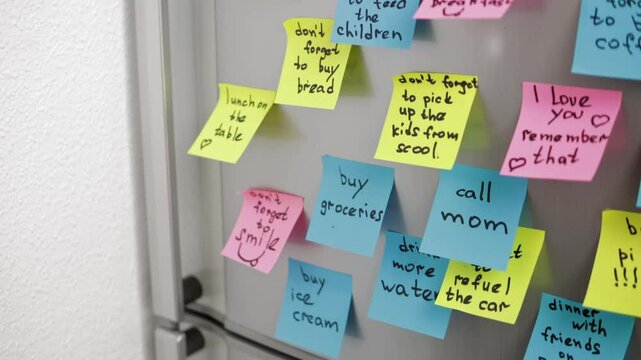 to feed
the
children
breakfast
to b
coff
don't
forget
to buy
bread
lunch on
the
table
don't forget
to pick
up the
kids from
scool.
I love
you
remember
that
buy
groceries
call
mom
don't
forget
to
smile
drink
more
water
refuel
the car
buy
ice
cream
b
pi
!!!
dinner
with
friends